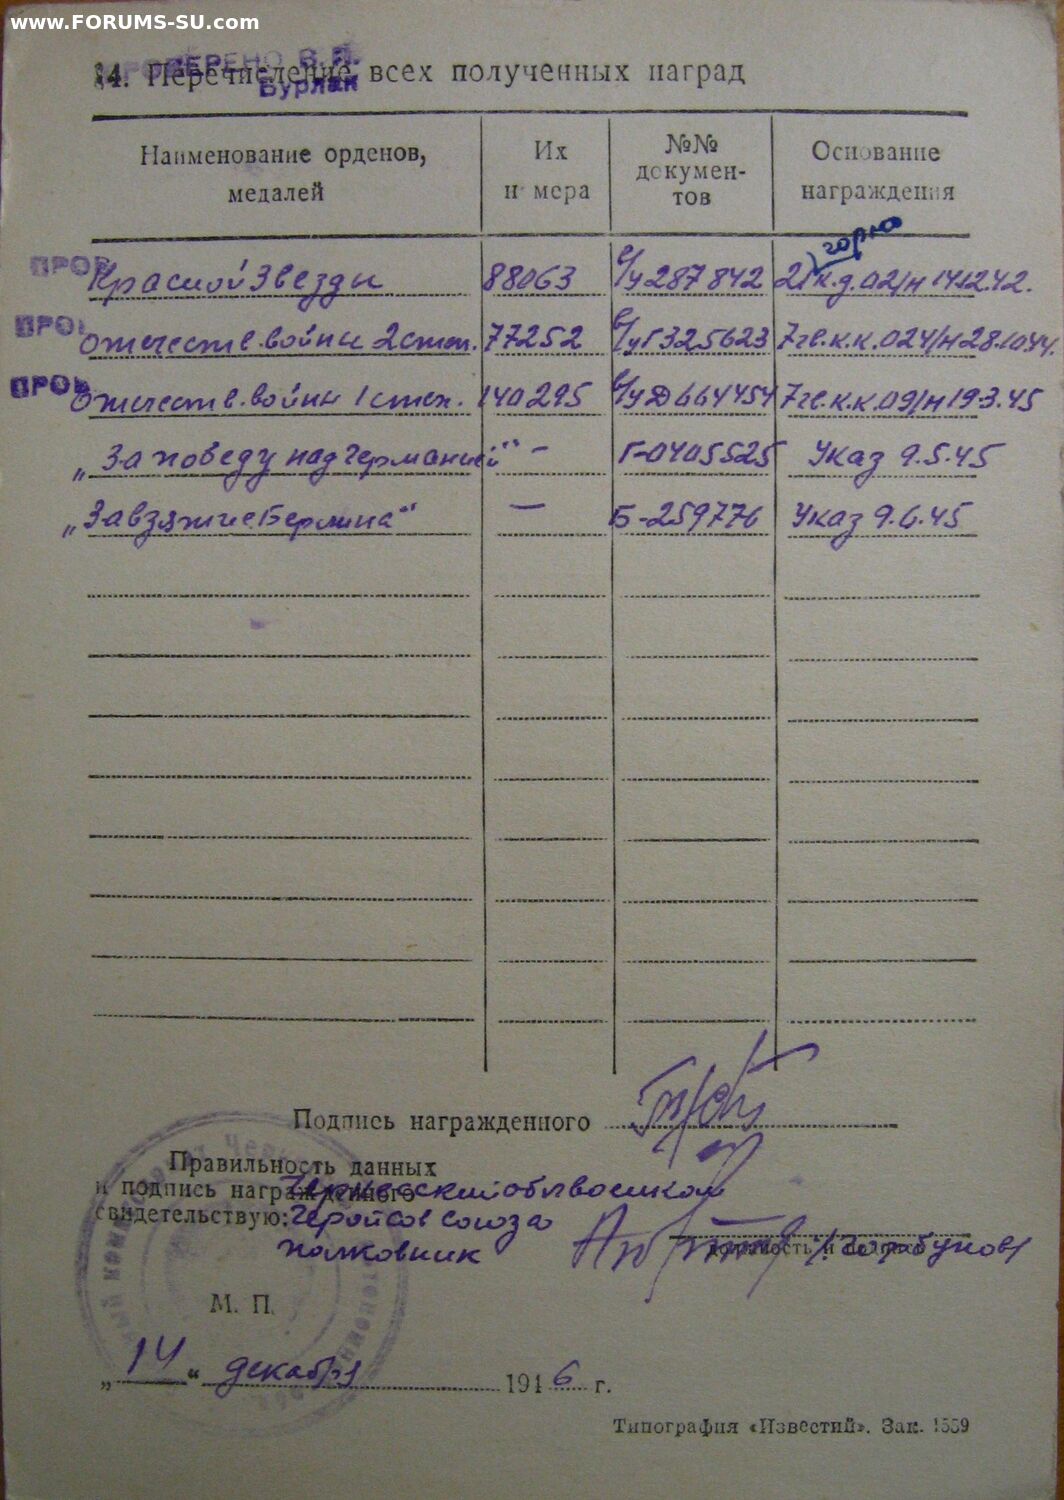 www.FORUMS-SU.com
ПРОВЕРЕНО В.П.
Бурлак
14. Перечисление всех полученных наград
Наименование орденов, медалей
Их номера
№№ документов
Основание награждения
горно
ПРОВ Красной Звезды 88063 287842 21 к.д. 02/н 14.12.42.
ПРОВ Отечеств. войны 2 степ. 77252 Г 325623 7 гв.к.к. 024/н 28.10.44.
ПРОВ Отечеств. войны 1 степ. 140295 Д 664454 7 гв.к.к. 09/н 19.3.45
„За победу над Германией" - Г-0405525 Указ 9.5.45
„За взятие Берлина" — Б-259776 Указ 9.6.45
Подпись награжденного
Правильность данных
и подпись награжденного
свидетельствую:
облвоенком
Союза
полковник
должность и
М. П.
„14" декабря 1946 г.
Типография «Известий». Зак. 1559